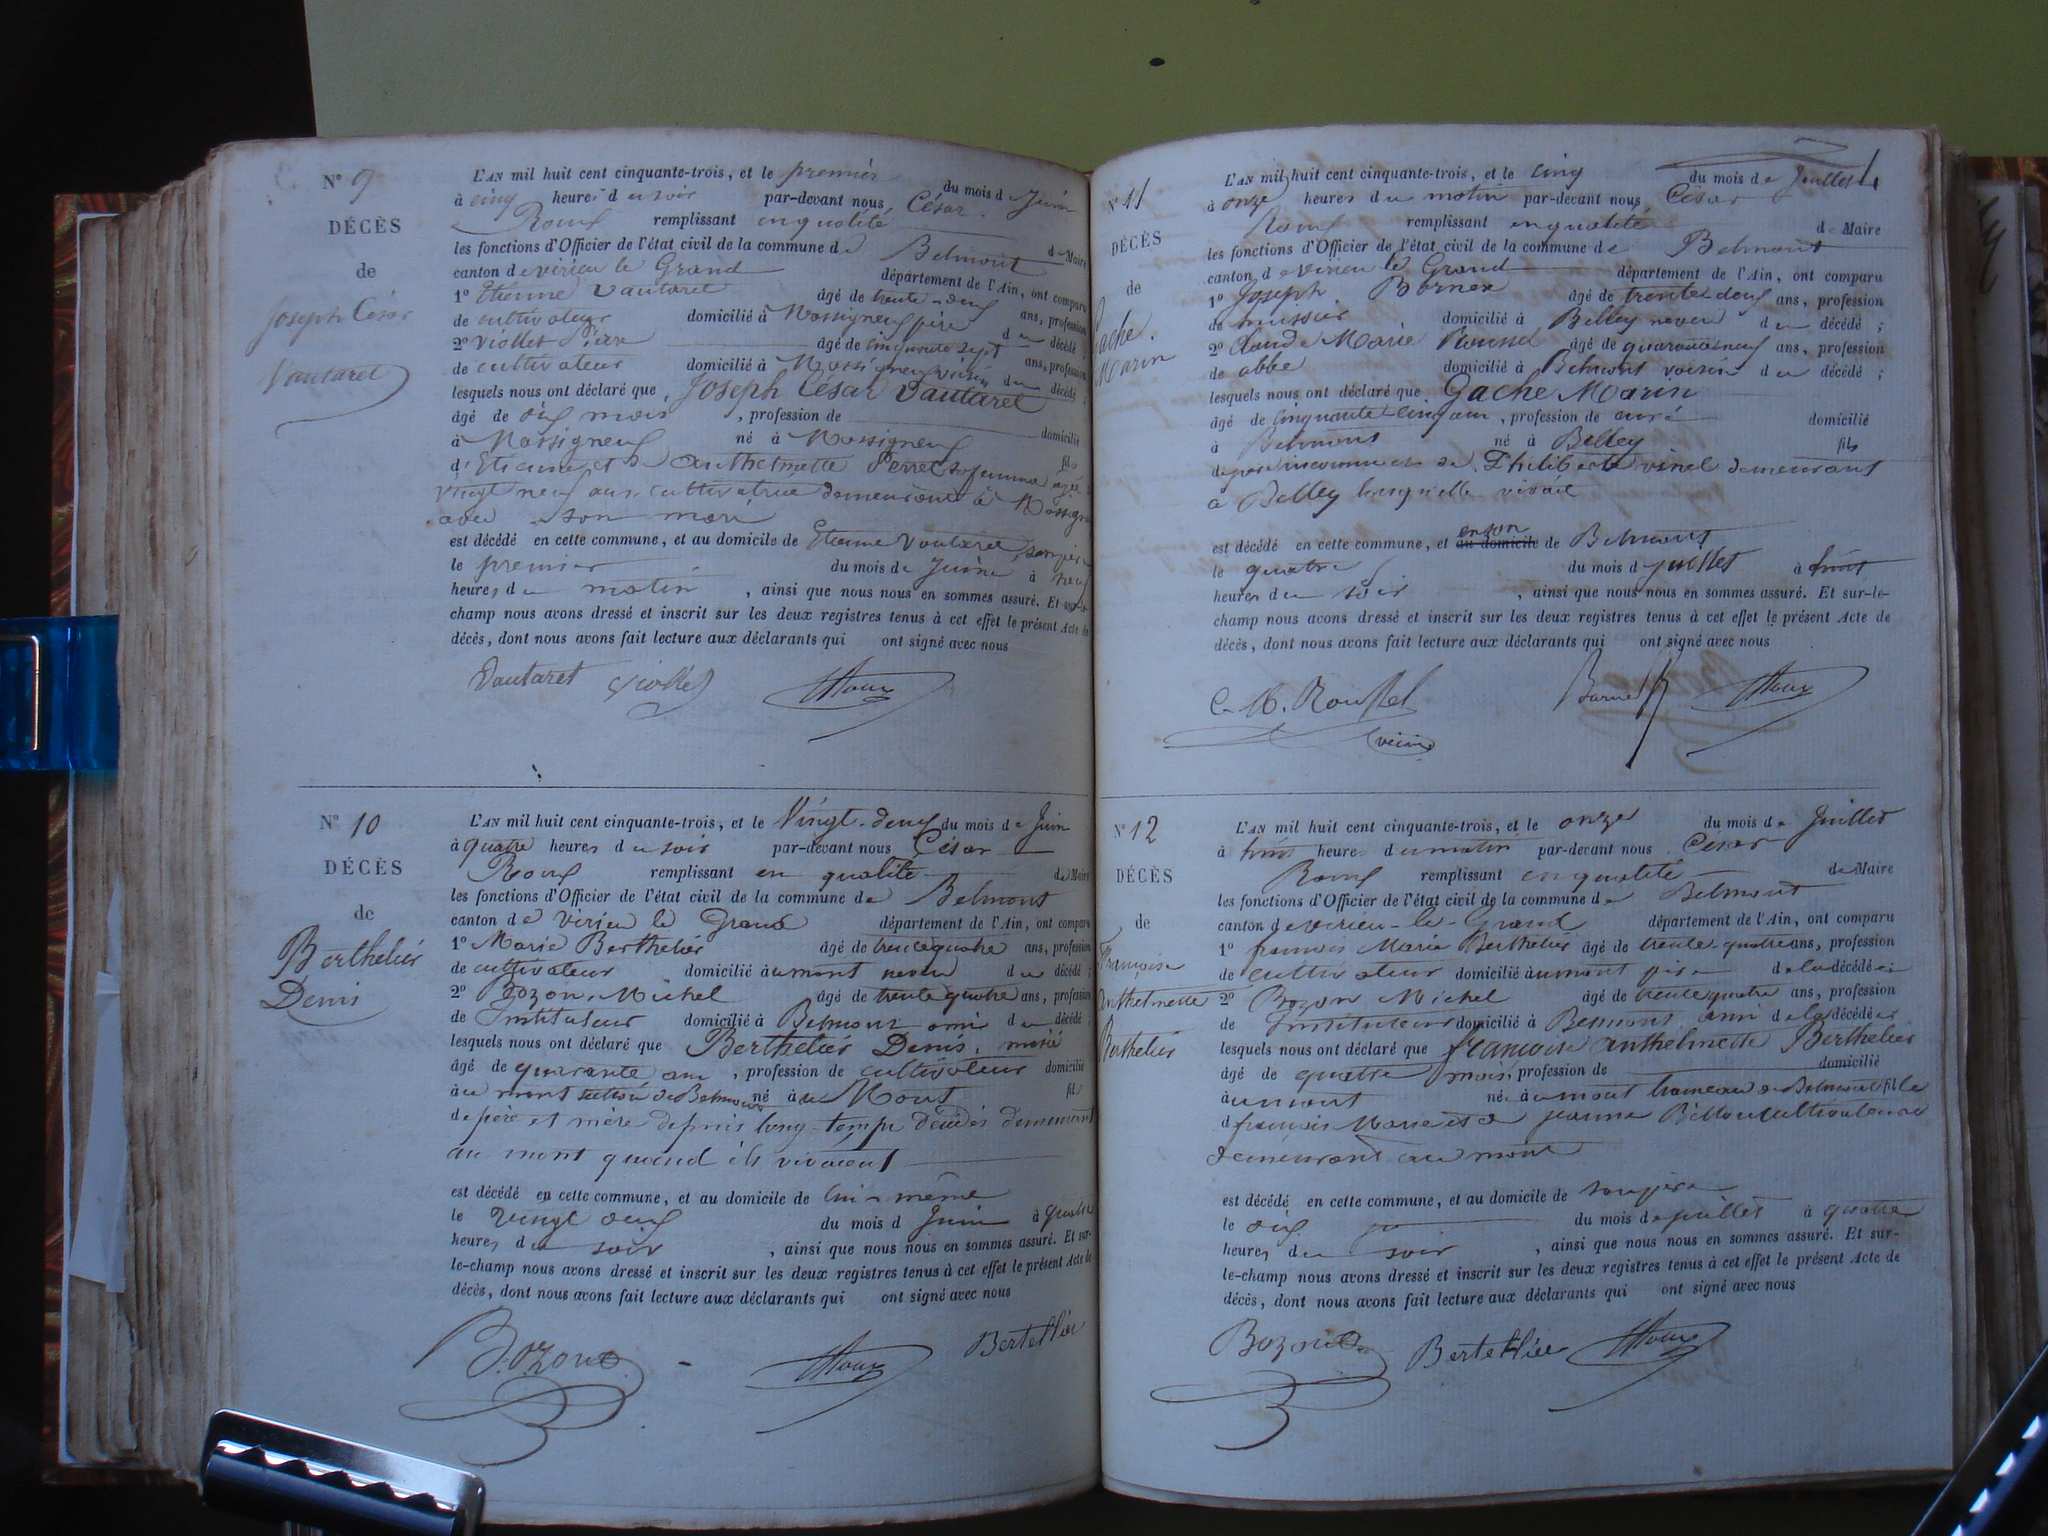 N° 9
DÉCÈS
de
Joseph César
Vautaret
L'AN mil huit cent cinquante-trois, et le premier du mois de Juin
à cinq heures du soir par-devant nous César
Roux remplissant en qualité de Maire
les fonctions d'Officier de l'état civil de la commune de Belmont
canton de virieu le Grand département de l'Ain, ont comparu
1° Etienne Vautaret âgé de trente-deux ans, profession
de cultivateur domicilié à Massigneux père du décédé ;
2° Viollet Pierre âgé de cinquante sept ans, profession
de cultivateur domicilié à Massigneux voisin du décédé ;
lesquels nous ont déclaré que Joseph César Vautaret
âgé de dix mois , profession de domicilié
à Massigneux né à Massigneux fils
d'Etienne et de anthelmette Perret sa femme agée
vingt neuf ans cultivatrice demeurant à Massign
avec son mari
est décédé en cette commune, et au domicile de Etienne Vautaret, son père
le premier du mois de Juin à neuf
heures du matin , ainsi que nous nous en sommes assuré. Et sur-le-
champ nous avons dressé et inscrit sur les deux registres tenus à cet effet le présent Acte de
décès, dont nous avons fait lecture aux déclarants qui ont signé avec nous
Vautaret Viollet Roux
N° 10
DÉCÈS
de
Berthelier
Denis
L'AN mil huit cent cinquante-trois, et le Vingt-deux du mois de Juin
à quatre heures du soir par-devant nous César
Roux remplissant en qualité de Maire
les fonctions d'Officier de l'état civil de la commune de Belmont
canton de virieu le Grand département de l'Ain, ont comparu
1° Marie Berthelier âgé de trente quatre ans, profession
de cultivateur domicilié à au mont neveu du décédé ;
2° Bozon Michel âgé de trente quatre ans, profession
de Instituteur domicilié à Belmont ami du décédé ;
lesquels nous ont déclaré que Berthelier Denis, marié
âgé de quarante ans , profession de cultivateur domicilié
à au mont section de Belmont né à au Mont fils
de père et mère depuis long-temps décédés demeurant
au mont quand ils vivaient
est décédé en cette commune, et au domicile de lui-même
le vingt deux du mois d Juin à quatre
heures du soir , ainsi que nous nous en sommes assuré. Et sur-
le-champ nous avons dressé et inscrit sur les deux registres tenus à cet effet le présent Acte de
décès, dont nous avons fait lecture aux déclarants qui ont signé avec nous
Bozon Roux Berthelier
N° 11
DÉCÈS
de
Gache
Marin
L'AN mil huit cent cinquante-trois, et le cinq du mois de Juillet
à onze heures du matin par-devant nous César
Roux remplissant en qualité de Maire
les fonctions d'Officier de l'état civil de la commune de Belmont
canton de virieu le Grand département de l'Ain, ont comparu
1° Joseph Bornex âgé de trente deux ans, profession
de huissier domicilié à Belley neveu du décédé ;
2° Claude Marie âgé de quarante neuf ans, profession
de abbé domicilié à Belmont voisin du décédé ;
lesquels nous ont déclaré que Gache Marin
âgé de cinquante cinq ans , profession de curé domicilié
à Belmont né à Belley fils
de père inconnu et de Philiberte vinel demeurant
a Belley lorsqu'elle vivait
est décédé en cette commune, et en son au domicile de Belmont
le quatre du mois de juillet à huit
heures du soir , ainsi que nous nous en sommes assuré. Et sur-le-
champ nous avons dressé et inscrit sur les deux registres tenus à cet effet le présent Acte de
décès, dont nous avons fait lecture aux déclarants qui ont signé avec nous
C. M. Roux
N° 12
DÉCÈS
de
Françoise
Anthelmette
Berthelier
L'AN mil huit cent cinquante-trois, et le onze du mois de Juillet
à huit heures du matin par-devant nous César
Roux remplissant en qualité de Maire
les fonctions d'Officier de l'état civil de la commune de Belmont
canton de virieu-le-Grand département de l'Ain, ont comparu
1° francois Marie Berthelier âgé de trente quatre ans, profession
de cultivateur domicilié à au mont père de la décédée
2° Bozon Michel âgé de trente quatre ans, profession
de Instituteur domicilié à Belmont ami de la décédée
lesquels nous ont déclaré que francoise anthelmette Berthelier
âgé de quatre mois, profession de domicilié
à au mont né à au mont hameau de Belmont fille
d francois Marie et de jeanne Billon cultivateurs
demeurant au mont
est décédé en cette commune, et au domicile de son père
le dix du mois de juillet à quatre
heures du soir , ainsi que nous nous en sommes assuré. Et sur-
le-champ nous avons dressé et inscrit sur les deux registres tenus à cet effet le présent Acte de
décès, dont nous avons fait lecture aux déclarants qui ont signé avec nous
Bozon Berthelier Roux